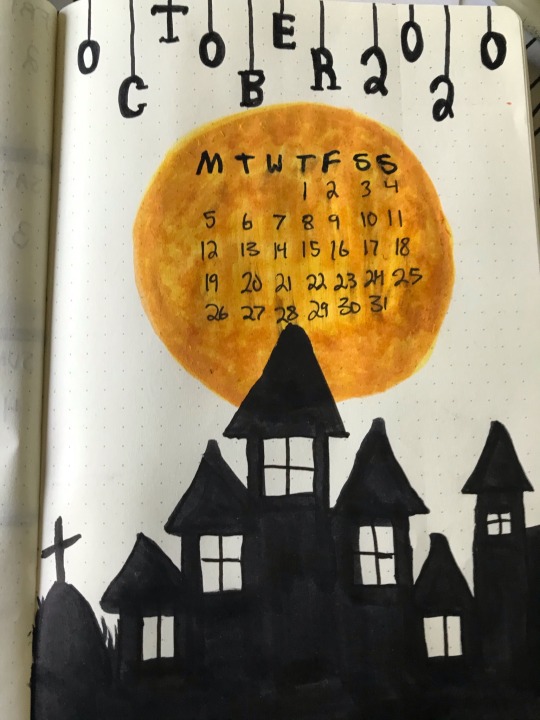 OCTOBER 2020
M T W T F S S
1 2 3 4
5 6 7 8 9 10 11
12 13 14 15 16 17 18
19 20 21 22 23 24 25
26 27 28 29 30 31